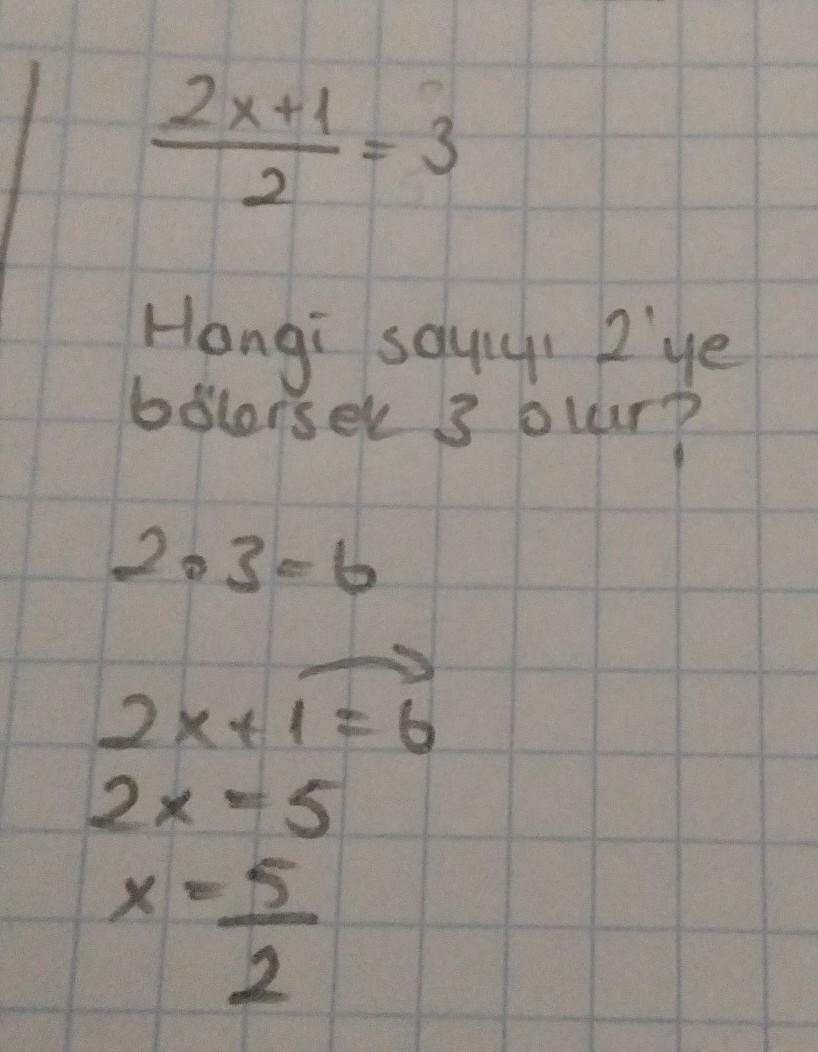 2x+1
2 = 3
Hangi sayıyı 2'ye
bölersek 3 olur?
2.3=6
2x+1=6
2x=5
x=5
2